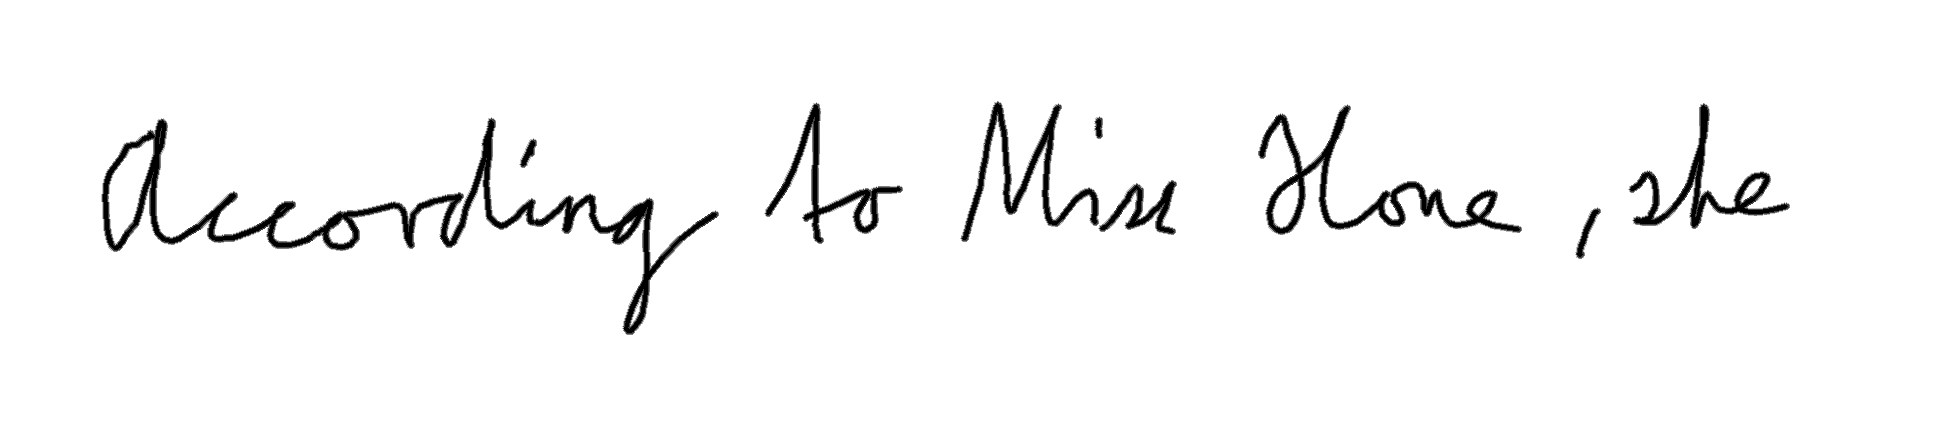 According to Miss Hone, she